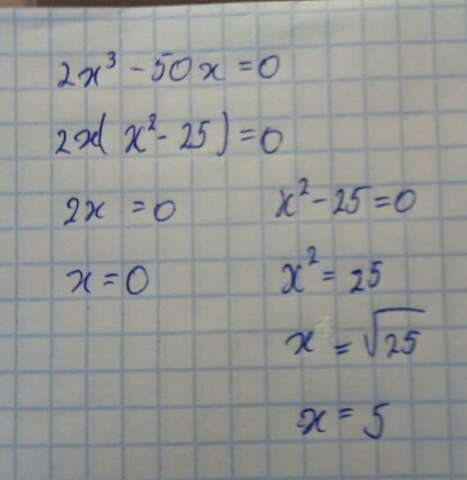 2x³ - 50x = 0
2x(x² - 25) = 0
2x = 0 x² - 25 = 0
x = 0 x² = 25
x = √25
x = 5